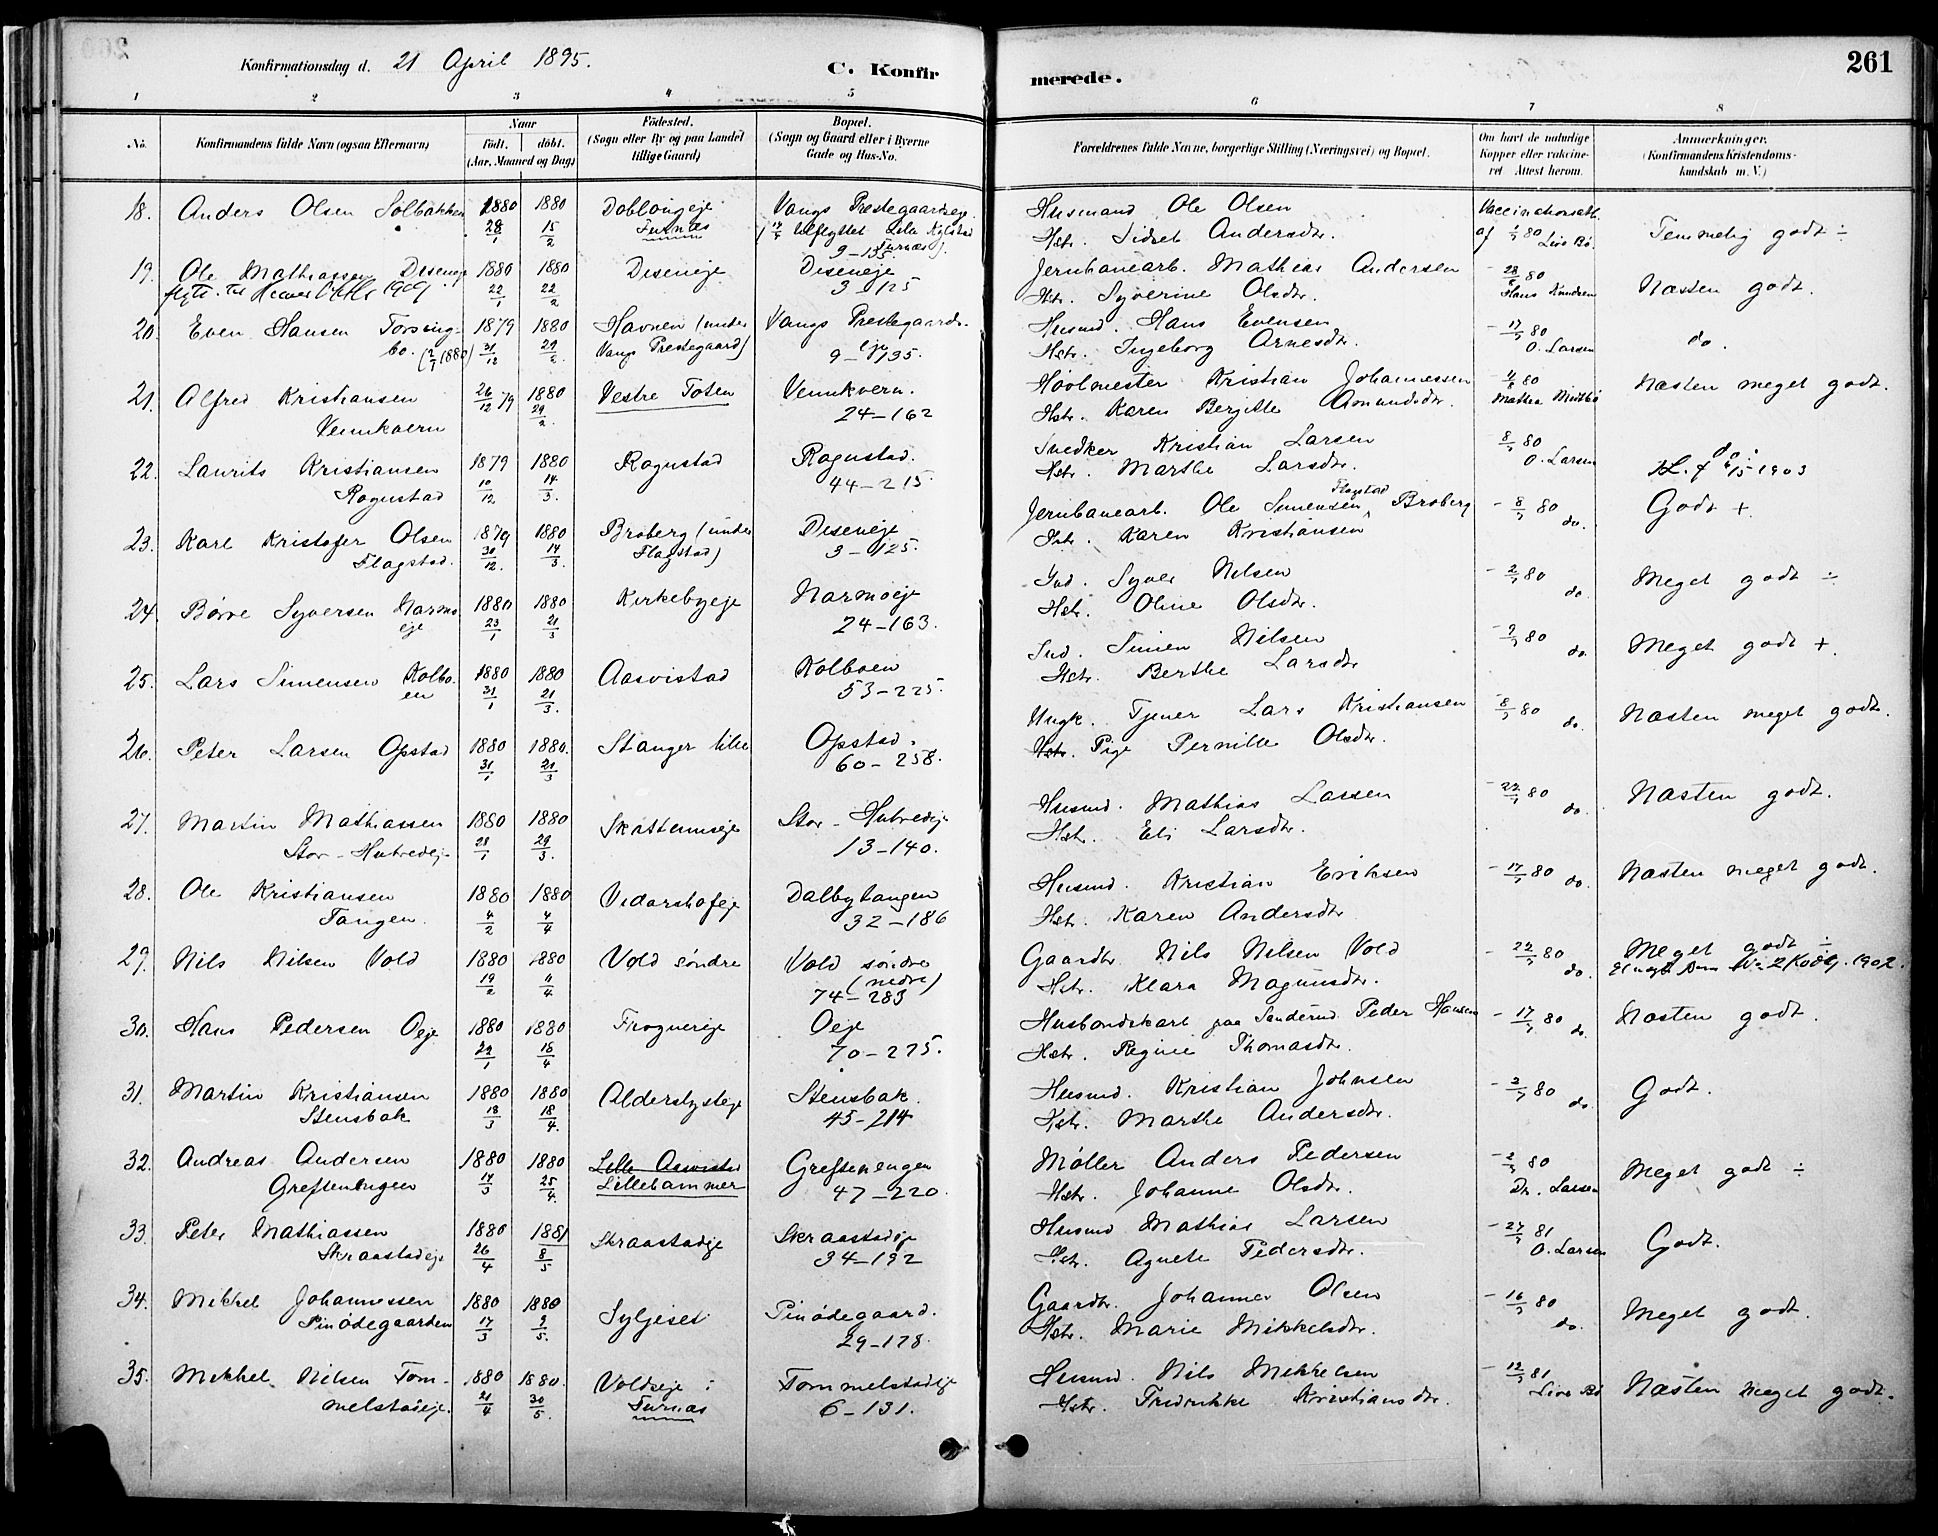 Konfirmationsdag d. 21 April 1895.
C. Konfirmerede.
261
1 2 3 4 5 6 7 8
No.
Konfirmandens fulde Navn (ogsaa Efternavn)
Naar
födt. döbt.
(Aar, Maaned og Dag)
Födested.
(Sogn eller By og paa Landet
tillige Gaard)
Bopæl.
(Sogn og Gaard eller i Byerne
Gade og Hus-No.
Forældrenes fulde Navne, borgerlige Stilling (Næringsvei) og Bopæl.
Om havt de naturlige
Kopper eller vaccine-
ret Attest herom.
Anmerkninger.
(Konfirmandens Kristendoms-
kundskab m. V.)
18. Anders Olsen Solbakken 1880 28/1 1880 15/2 Doblougeje Furnæs Vangs Prestegaardseje
Udflyttet Lille Furnæs). 9–135
Husmand Ole Olsen
Hstr. Sidsel Andersdtr.
Vaccinationsatt. af 80
Temmelig godt ÷
19. Ole Mathiassen Diseneje 1880 22/1 1880 22/2 Diseneje Diseneje
3–125
Jernbanearb. Mathias Andersen
Hstr. Syverine Olsdtr.
80 Hans Knudsen
Næsten godt.
20. Even Hansen Torsing-
bo. 1879 31/12 1880 29/2 Havnen (under
Vangs Prestegaard) Vangs Prestegaards-
eje 9–135
Husmd. Hans Evensen
Hstr. Ingeborg Arnesdtr.
80 O. Larsen
do.
21. Alfred Kristiansen
Vennkvern 26/12 79 1880 29/2 Vestre Toten Vennkvern.
24–162
Høvlmester Kristian Johannessen
Hstr. Karen Bergitte Amundsdtr.
80
Næsten meget godt.
22. Laurits Kristiansen
Rognstad 1879 10/12 1880 14/3. Rognstad Rognstad.
44–215
Snedker Kristian Larsen
Hstr. Marthe Larsdtr.
8/7 80 O. Larsen
do.
1903
23. Karl Kristofer Olsen
Flagstad. 1879 30/12. 1880 14/3. Broberg (under
Flagstad) Diseneje
3–125.
Jernbanearb. Ole Simensen Flagstad Broberg
Hstr. Karen Kristiansen
– 8/7 80 do.
Godt +
24. Børre Syversen Narmo
eje 1880 23/1 1880 21/3 Kirkebyeje Narmoeje
24–163.
Ind. Syver Nilsen
Hstr. Oline Olsdtr.
– 2/7 80 do.
Meget godt ÷
25. Lars Simensen Kolbo-
en 1880 31/1 1880 21/3. Aasvistad Kolboen
53–225.
Ind. Simen Nilsen
Hstr. Berthe Larsdtr
80 do
Meget godt +.
26. Peter Larsen Opstad 1880 31/1 1880. 21/3 Stanger lille Opstad.
60–258.
Ungk. Tjener Lars Kristiansen
Hstr. Pige Pernille Olsdtr.
– 8/7 80 do.
Næsten meget godt.
27. Martin Mathiassen
Stor-Huvedeje 1880 28/1 1880 29/3. Skattumseje Stor-Huvedeje
13–140.
Husmd. Mathias Larsen
Hstr. Eli Larsdtr.
– 22/7 80 do.
Næsten godt.
28. Ole Kristiansen
Tangen. 1880 4/2 1880 4/4 Vidarshofeje Dalbytangen
32–186
Husmd. Kristian Eriksen
Hstr. Karen Andersdtr.
– 17/7 80 do.
Næsten meget godt.
29. Nils Nilsen Vold 1880 19/2 1880 4/4 Vold søndre Vold søndre
(nedre)
74–283
Gaardbr. Nils Nilsen Vold
Hstr. Klara Magnusdtr.
– 22/7 80 do.
Meget godt ÷
1902.
30. Hans Pedersen Oeje 1880 29/1 1880 18/4 Frognereje Oeje
70–275.
Husbondskarl paa Sanderud Peder Hansen
Hstr. Regine Thomasdtr.
– 17/7 80 do
Næsten godt.
31. Martin Kristiansen
Stensbak 1880 18/3 1880 18/4. Alderslysteje Stensbak.
45–214
Husmd. Kristian Johnsen
Hstr. Marthe Andersdtr.
– 2/7 80 do.
Godt.
32. Andreas Andersen
Greftenengen 1880 14/3 1880 25/4. Lille Aasvistad
Lillehammer Greftenengen
47–220.
Møller Anders Pedersen
Hstr. Johanne Olsdtr.
80 Dr. Larsen
Meget godt ÷
33. Peter Mathiassen
Skraastadeje 1880 26/4 1881 8/5 Skraastadeje Skraastadeje
34–192
Husmd Mathias Larsen
Hstr. Agnete Pedersdtr.
– 27/7 81 O. Larsen
Godt.
34. Mikkel Johannessen
Pinødegaarden 1880 17/3 1880 9/5. Syljeset Pinødegaard.
29–178.
Gaardbr. Johannes Olsen
Hstr. Marie Mikkelsdtr.
– 16/7 80 do.
Meget godt.
35. Mikkel Nilsen Tom-
melstadeje. 1880 21/4 1880. 30/5. Voldseje i
Furnæs Tommelstadeje
6–131.
Husmd. Nils Mikkelsen
Hstr. Fredrikke Kristiansdtr.
– 12/7 81
Næsten meget godt.